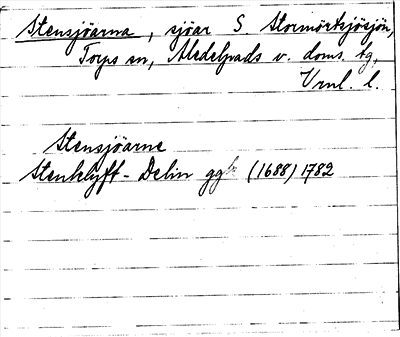 Stensjöarna, sjöar S Stormörtsjösjön,
Torps sn, Medelpads v. doms. tg,
Vrnl. l.
Stensjöarne
Stenklyft - Delin (1688) 1782